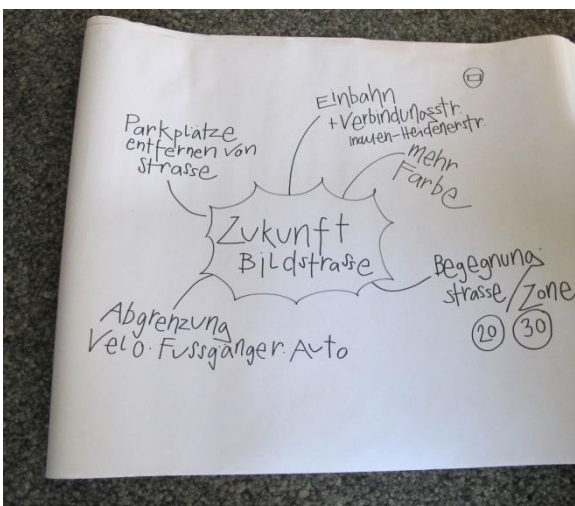 Zukunft
Bildstrasse
Parkplätze
entfernen von
Strasse
Einbahn
+Verbindungsstr.
Heidenerstr.
mehr
Farbe
Begegnung
strasse/Zone
20 30
Abgrenzung
Velo. Fussgänger. Auto